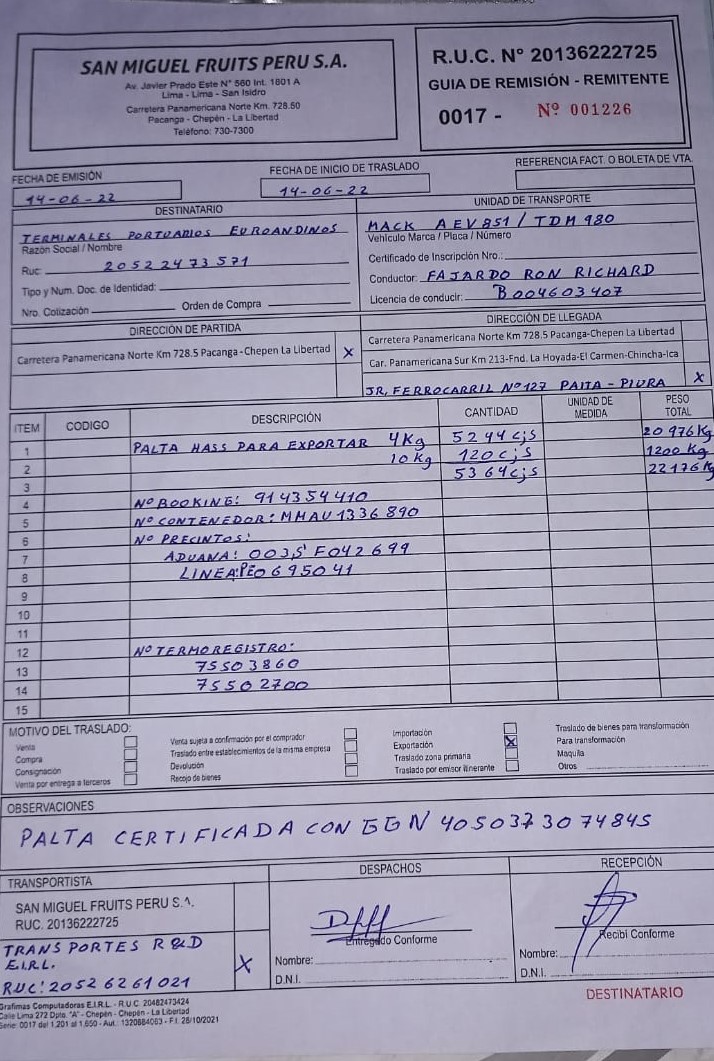 SAN MIGUEL FRUITS PERU S.A.
Av. Javier Prado Este N° 560 Int. 1801 A
Lima - Lima - San Isidro
Carretera Panamericana Norte Km. 728.50
Pacanga - Chepén - La Libertad
Teléfono: 730-7300
R.U.C. N° 20136222725
GUIA DE REMISIÓN - REMITENTE
0017 - Nº 001226
FECHA DE EMISIÓN
14-06-22
FECHA DE INICIO DE TRASLADO
14-06-22
REFERENCIA FACT. O BOLETA DE VTA.
DESTINATARIO
TERMINALES PORTUARIOS EUROANDINOS
Razón Social / Nombre
Ruc: 20522473571
Tipo y Num. Doc. de Identidad:
Nro. Cotización Orden de Compra
UNIDAD DE TRANSPORTE
MACK AEV851 / TDM 980
Vehículo Marca / Placa / Número
Certificado de Inscripción Nro.:
Conductor: FAJARDO RON RICHARD
Licencia de conducir: B004603407
DIRECCIÓN DE PARTIDA
Carretera Panamericana Norte Km 728.5 Pacanga-Chepen La Libertad X
DIRECCIÓN DE LLEGADA
Carretera Panamericana Norte Km 728.5 Pacanga-Chepen La Libertad
Car. Panamericana Sur Km 213-Fnd. La Hoyada-El Carmen-Chincha-Ica
JR. FERROCARRIL Nº127 PAITA - PIURA X
ITEM CODIGO DESCRIPCIÓN CANTIDAD UNIDAD DE MEDIDA PESO TOTAL
1 PALTA HASS PARA EXPORTAR 4Kg 5244cjs 20976Kg
2 10Kg 120cjs 1200 Kg
3 5364cjs 22176Kg
4 Nº BOOKING: 914354410
5 Nº CONTENEDOR: MMAU1336890
6 Nº PRECINTOS:
7 ADUANA: 0035 F042699
8 LINEA: PE0695041
9
10
11
12 Nº TERMOREGISTRO:
13 75503860
14 75502700
15
MOTIVO DEL TRASLADO:
Venta
Compra
Consignación
Venta por entrega a terceros
Venta sujeta a confirmación por el comprador
Traslado entre establecimientos de la misma empresa
Devolución
Recojo de bienes
Importación
Exportación X
Traslado zona primaria
Traslado por emisor itinerante
Traslado de bienes para transformación
Para transformación
Maquila
Otros
OBSERVACIONES
PALTA CERTIFICADA CON GGN 4050373074845
TRANSPORTISTA
SAN MIGUEL FRUITS PERU S.A.
RUC. 20136222725
TRANSPORTES R&D
E.I.R.L. X
RUC: 20526261021
DESPACHOS
Entregado Conforme
Nombre:
D.N.I.
RECEPCIÓN
Recibi Conforme
Nombre:
D.N.I.
DESTINATARIO
Grafimas Computadoras E.I.R.L - R.U.C. 20482473424
Calle Lima 272 Dpto. "A" - Chepén - Chepén - La Libertad
Serie: 0017 del 1,201 al 1,650 - Aut.: 1320884063 - F.I. 28/10/2021